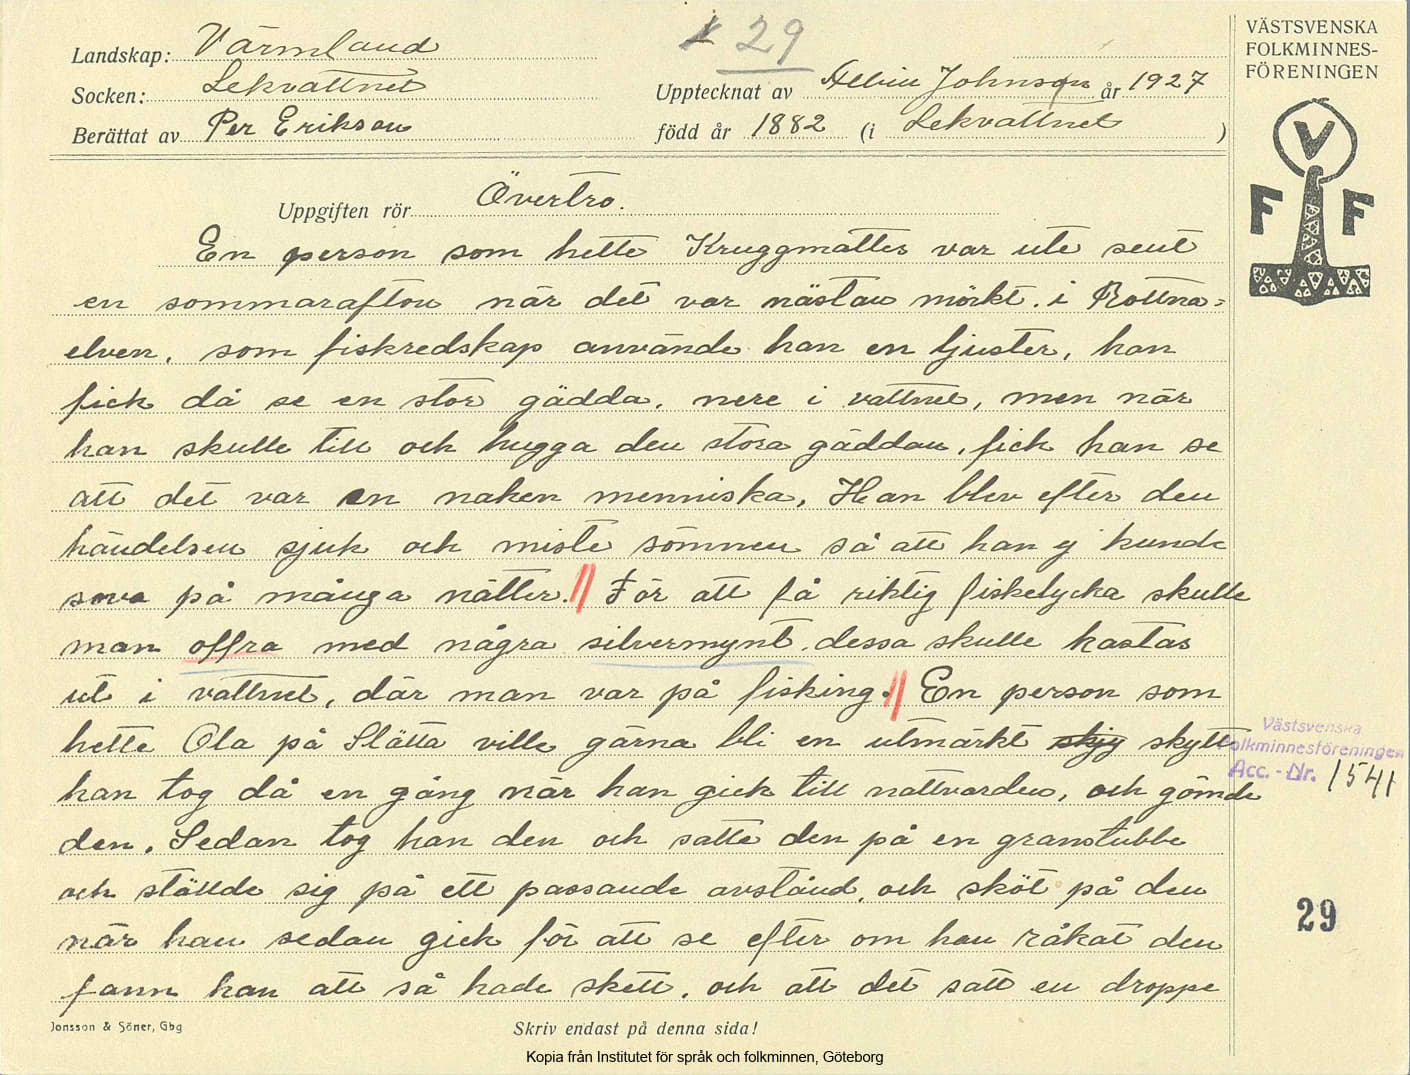 Landskap: Värmland
Socken: Lekvattnet
Berättat av Per Erikson
1 29
Upptecknat av Albin Johnson år 1927
född år 1882 (i Lekvattnet)
VÄSTSVENSKA
FOLKMINNES-
FÖRENINGEN
V
F F
Uppgiften rör Övertro.
En person som hette Kruggmattes var ute sent
en sommarafton när det var nästan mörkt. i Rottna=
elven. som fiskredskap använde han en ljuster, han
fick då se en stor gädda. nere i vattnet, men när
han skulle till och hugga den stora gäddan, fick han se
att det var en naken menniska, Han blev efter den
händelsen sjuk och miste sömnen så att han ej kunde
sova på många nätter. // För att få riktig fiskelycka skulle
man offra med några silvermynt. dessa skulle kastas
ut i vattnet, där man var på fisking. // En person som
hette Ola på Slätta ville gärna bli en utmärkt skjy skytt
han tog då en gång när han gick till nattvarden, och gömde
den. Sedan tog han den och satte den på en granstubbe
och ställde sig på ett passande avstånd, och sköt på den
när han sedan gick för att se efter om han råkat den
fann han att så hade skett. och att det satt en droppe
Västsvenska
Folkminnesföreningen
Acc.-Nr. 1541
29
Jonsson & Söner, Gbg
Skriv endast på denna sida!
Kopia från Institutet för språk och folkminnen, Göteborg